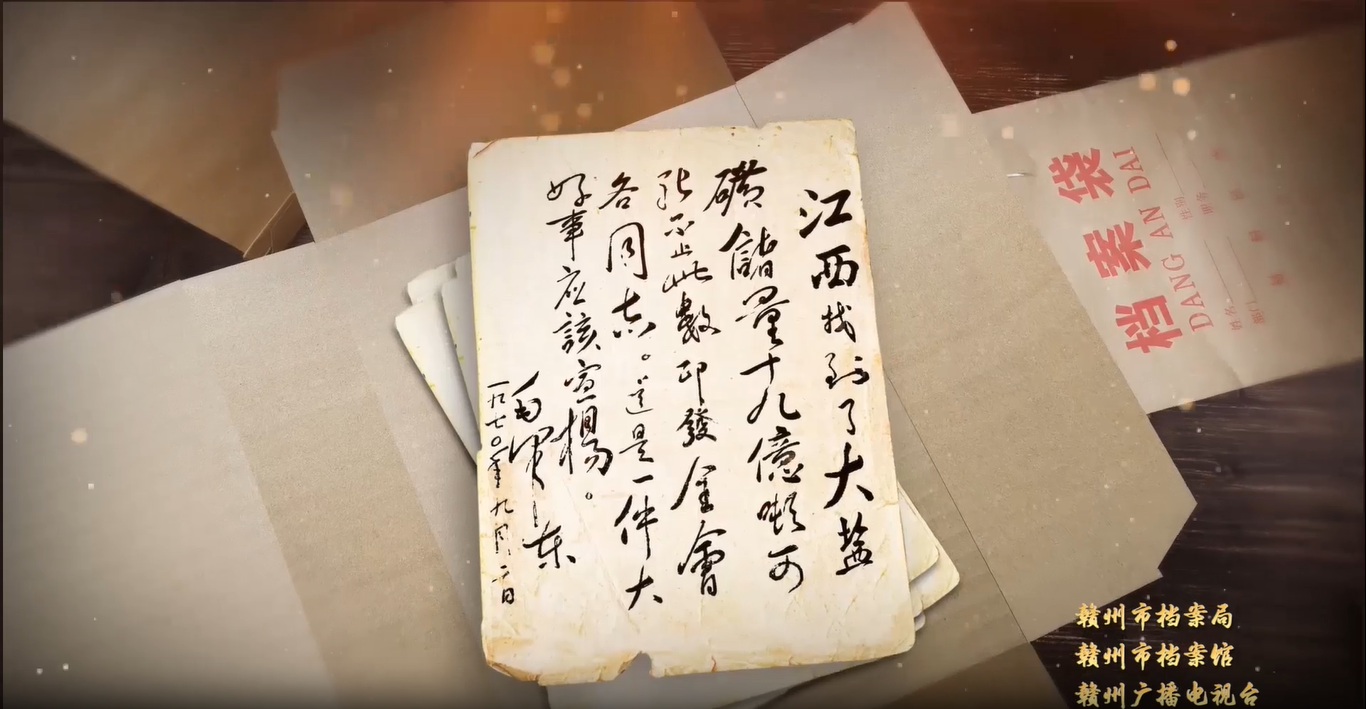 江西找到了大盐
礦儲量十九億噸可
能不止此數印發全會
各同志。這是一件大
好事應該宣揚。
毛澤东
一九七〇年九月
档案袋
DANG AN DAI
赣州市档案局
赣州市档案馆
赣州广播电视台